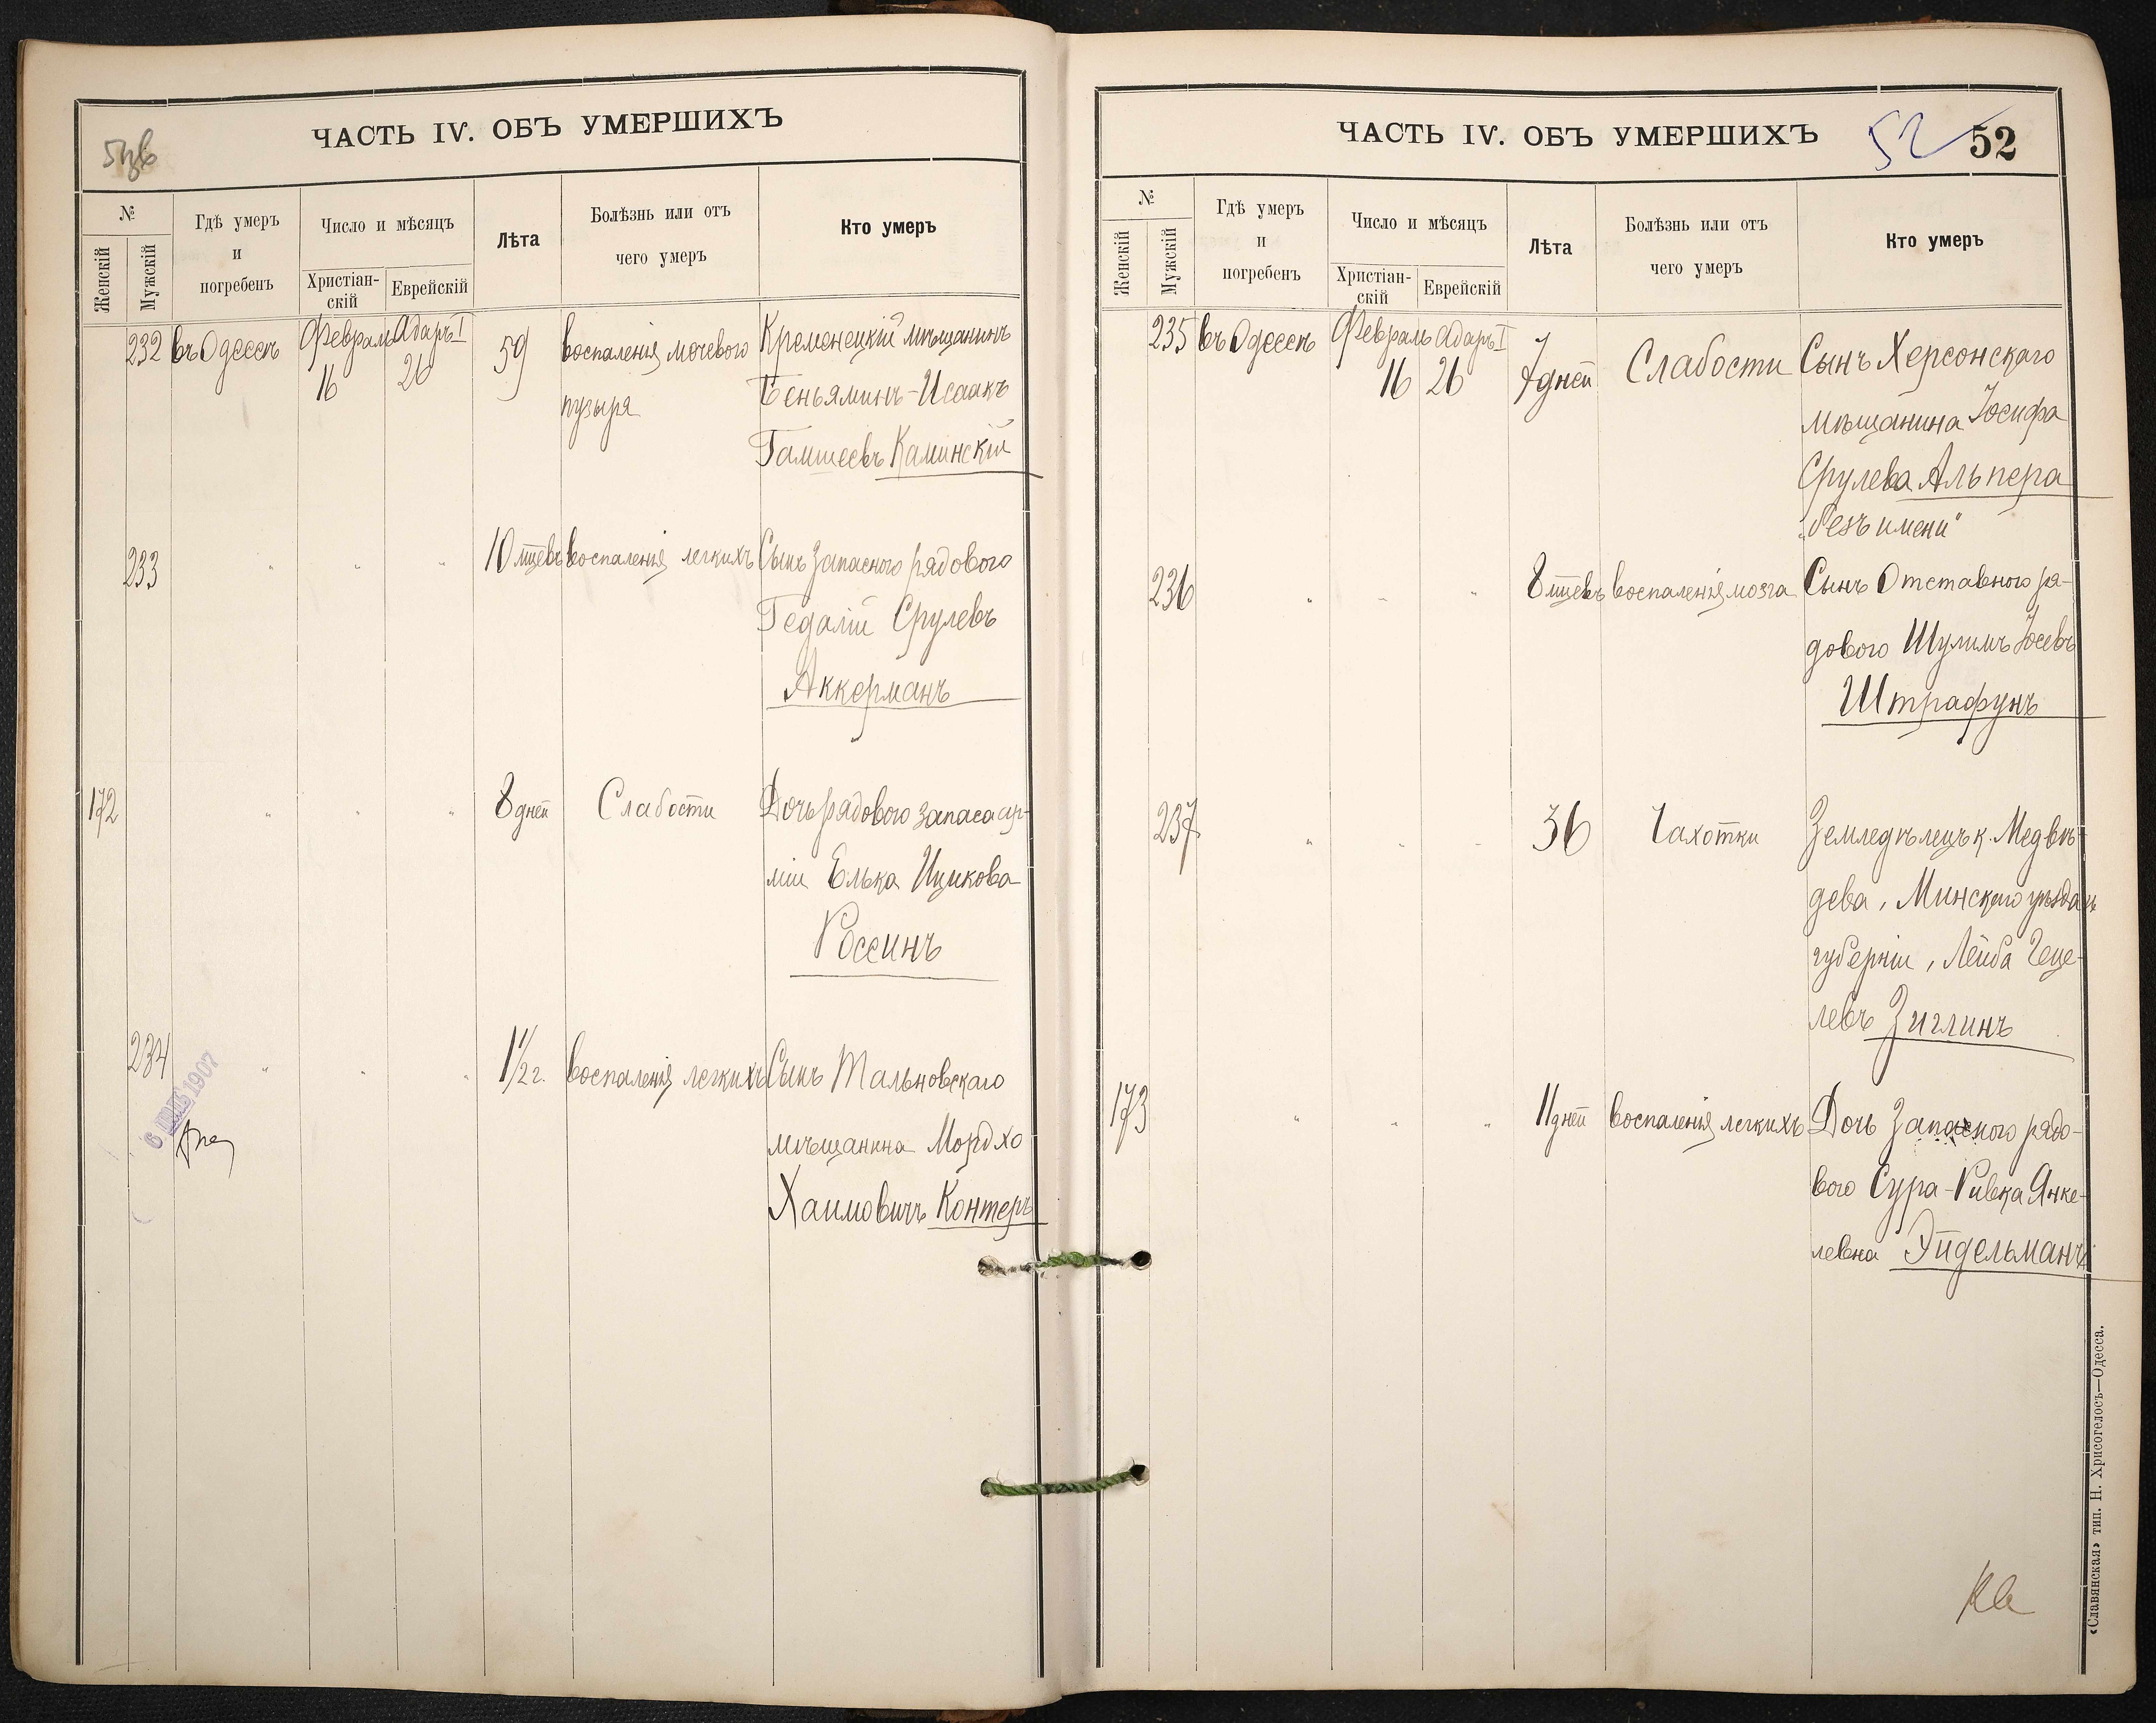 ЧАСТЬ IV. ОБЪ УМЕРШИХЪ
№
Женскій
Мужскій
Гдѣ умеръ
и
погребенъ
Число и мѣсяцъ
Христіан-
скій
Еврейскій
Лѣта
Болѣзнь или отъ
чего умеръ
Кто умеръ
232 въ Одессѣ Февраль Адаръ I 59 воспаленія мочевого Кременецкій мѣщанинъ
16 26 пузыря Беньяминъ-Исаакъ
Гамшеевъ Каминскій
233 " " " 10 мцевъ воспаленія легкихъ Сынъ Запасного рядового
Гедалій Срулевъ
Аккерманъ
172 " " " 8 дней Слабости Дочь рядового запаса ар-
міи Елька Ицикова
Россинъ
234 " " " 1 1/2 г. воспаленія легкихъ Сынъ Тальновскаго
6 1907
мѣщанина Мордхо
Хаимовичъ Контеръ
ЧАСТЬ IV. ОБЪ УМЕРШИХЪ
52 52
№
Женскій
Мужскій
Гдѣ умеръ
и
погребенъ
Число и мѣсяцъ
Христіан-
скій
Еврейскій
Лѣта
Болѣзнь или отъ
чего умеръ
Кто умеръ
235 въ Одессѣ Февраль Адаръ I 7 Слабости Сынъ Херсонскаго
16 26 7 дней мѣщанина Іосифа
Срулева Альпера
„безъ имени"
236 " " " 8 мцевъ воспаленія мозга Сынъ Отставного ря-
дового Шулимъ Іосевъ
Штрафунъ
237 " " " 36 Чахотки Земледѣлецъ к. Медвѣ-
дева, Минскаго уѣзда и
губерніи, Лейба Геце-
левъ Зиглинъ
173 " " " 11 дней воспаленія легкихъ Дочь Запасного рядо-
вого Сура-Ривка Янке-
левна Эйдельманъ
«Славянская» тип. Н. Хрисогелосъ—Одесса.